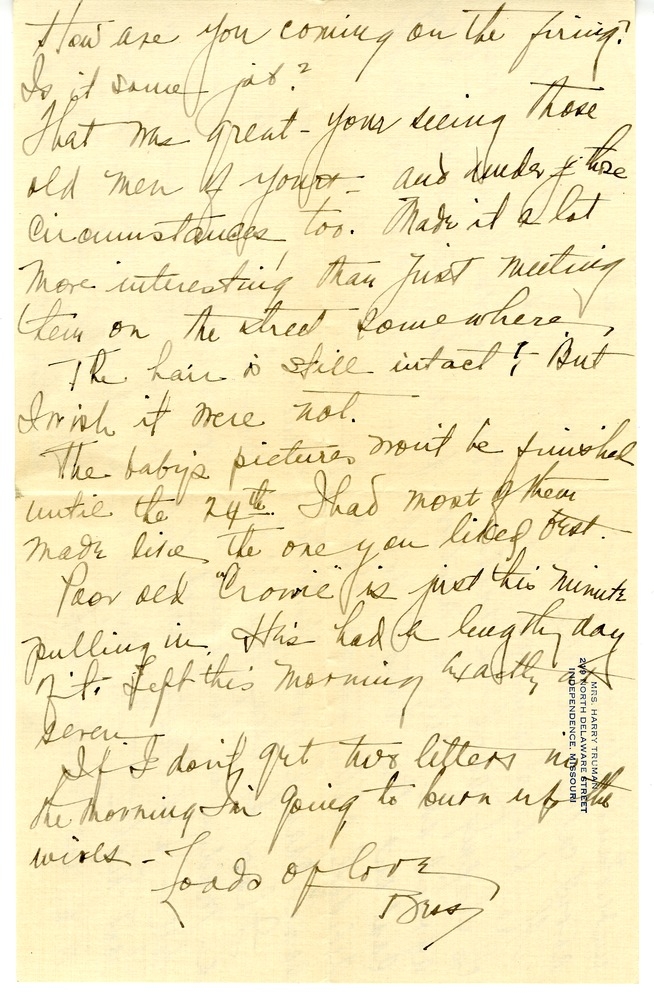 How are you coming on the firing?
Is it some job?
That was great - your seeing those
old men of yours - and under those
circumstances, too. Made it a lot
more interesting than just meeting
them on the street somewhere,
The hair is still intact! - But
I wish it were not.
The baby's pictures won't be finished
until the 24th. I had most of them
made like the one you liked best.
Poor old "Crowie" is just this minute
pulling in. He's had a lengthy day
of it. Left this morning exactly at
seven
If I don't get two letters in
the morning I'm going to burn up the
wires -
Loads of love
Bess
MRS. HARRY TRUMAN
219 NORTH DELAWARE STREET
INDEPENDENCE, MISSOURI